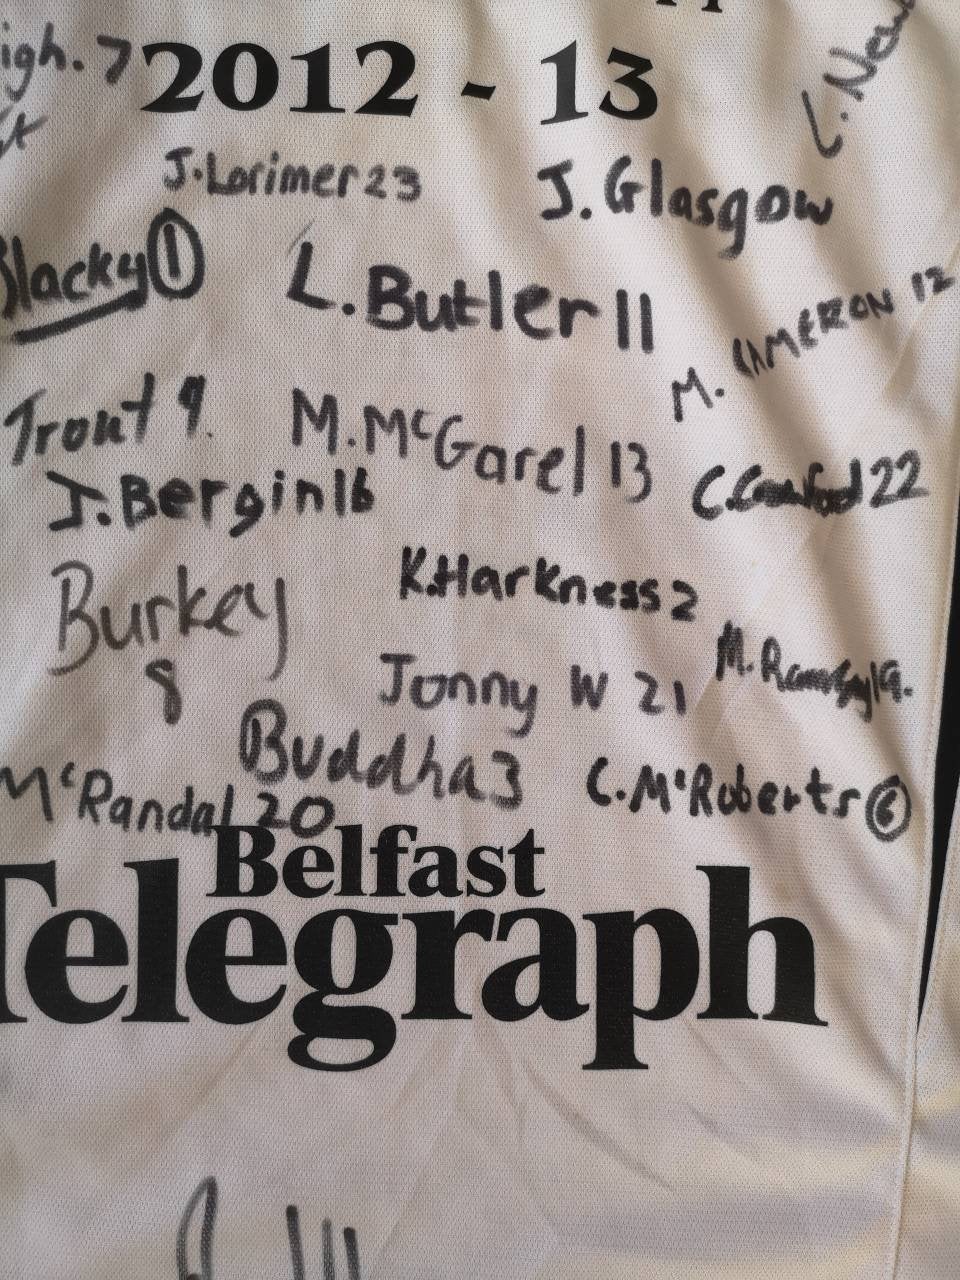 igh. 7
2012 - 13
J. Lorimer 23
J. Glasgow
Blacky 1
L. Butler 11
M. CAMERON 12
Trout 9.
M. McGarel 13
J. Bergin 16
C. Crawford 22
Burkey
8
K. Harkness 2
Jonny W 21
M. Ramsey 19.
Buddha 3
C. McRoberts 6
McRandal 20
Belfast
Telegraph